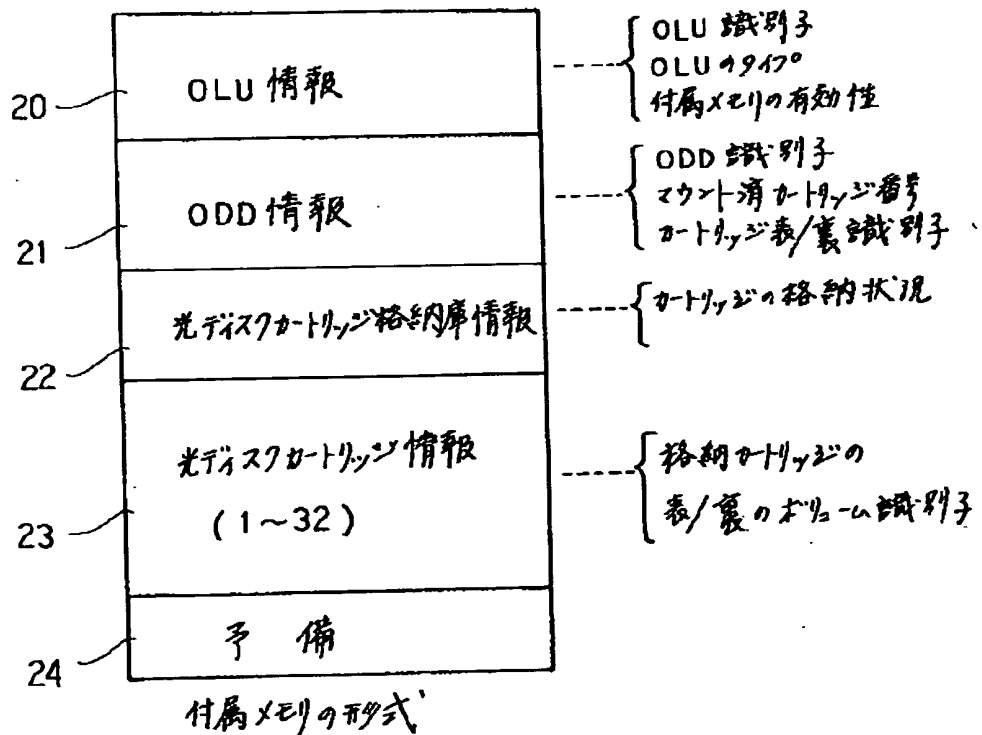 20
OLU 情報
OLU 識別子
OLUのタイプ
付属メモリの有効性
21
ODD 情報
ODD 識別子
マウント済カートリッジ番号
カートリッジ表/裏識別子
22
光ディスクカートリッジ格納庫情報
カートリッジの格納状況
23
光ディスクカートリッジ情報
(1~32)
格納カートリッジの
表/裏のボリューム識別子
24
予 備
付属メモリの形式